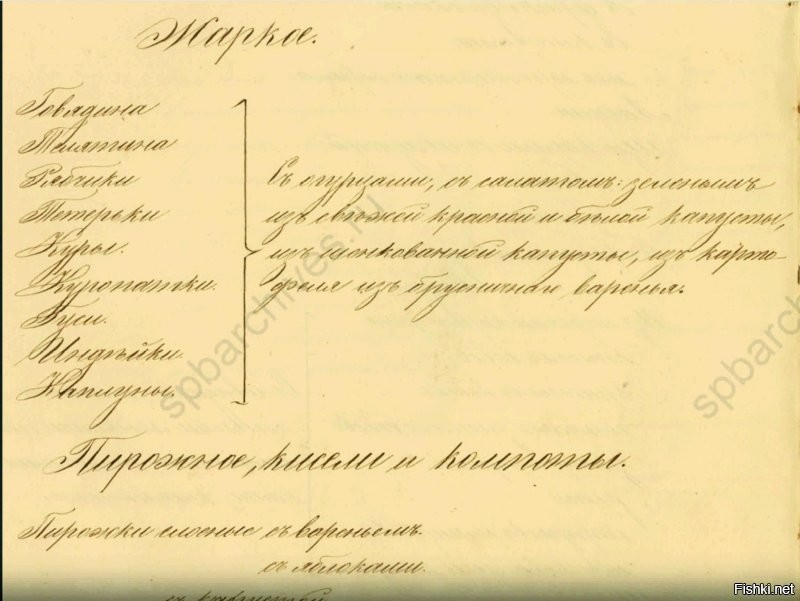 Жаркое.
Говядина
Телятина
Рябчики
Тетерьки
Куры.
Куропатки.
Гуси.
Индѣйки.
Каплуны.
Съ огурцами, съ салатомъ: зеленымъ
изъ свѣжей красной и бѣлой капусты,
изъ шинкованной капусты, изъ карто-
феля изъ брусничнаго варенья.
Пирожное, кисели и компоты.
Пирожки слоеные съ вареньемъ.
съ яблоками.
съ капустой
spbarchives.ru
spbarch
Fishki.net